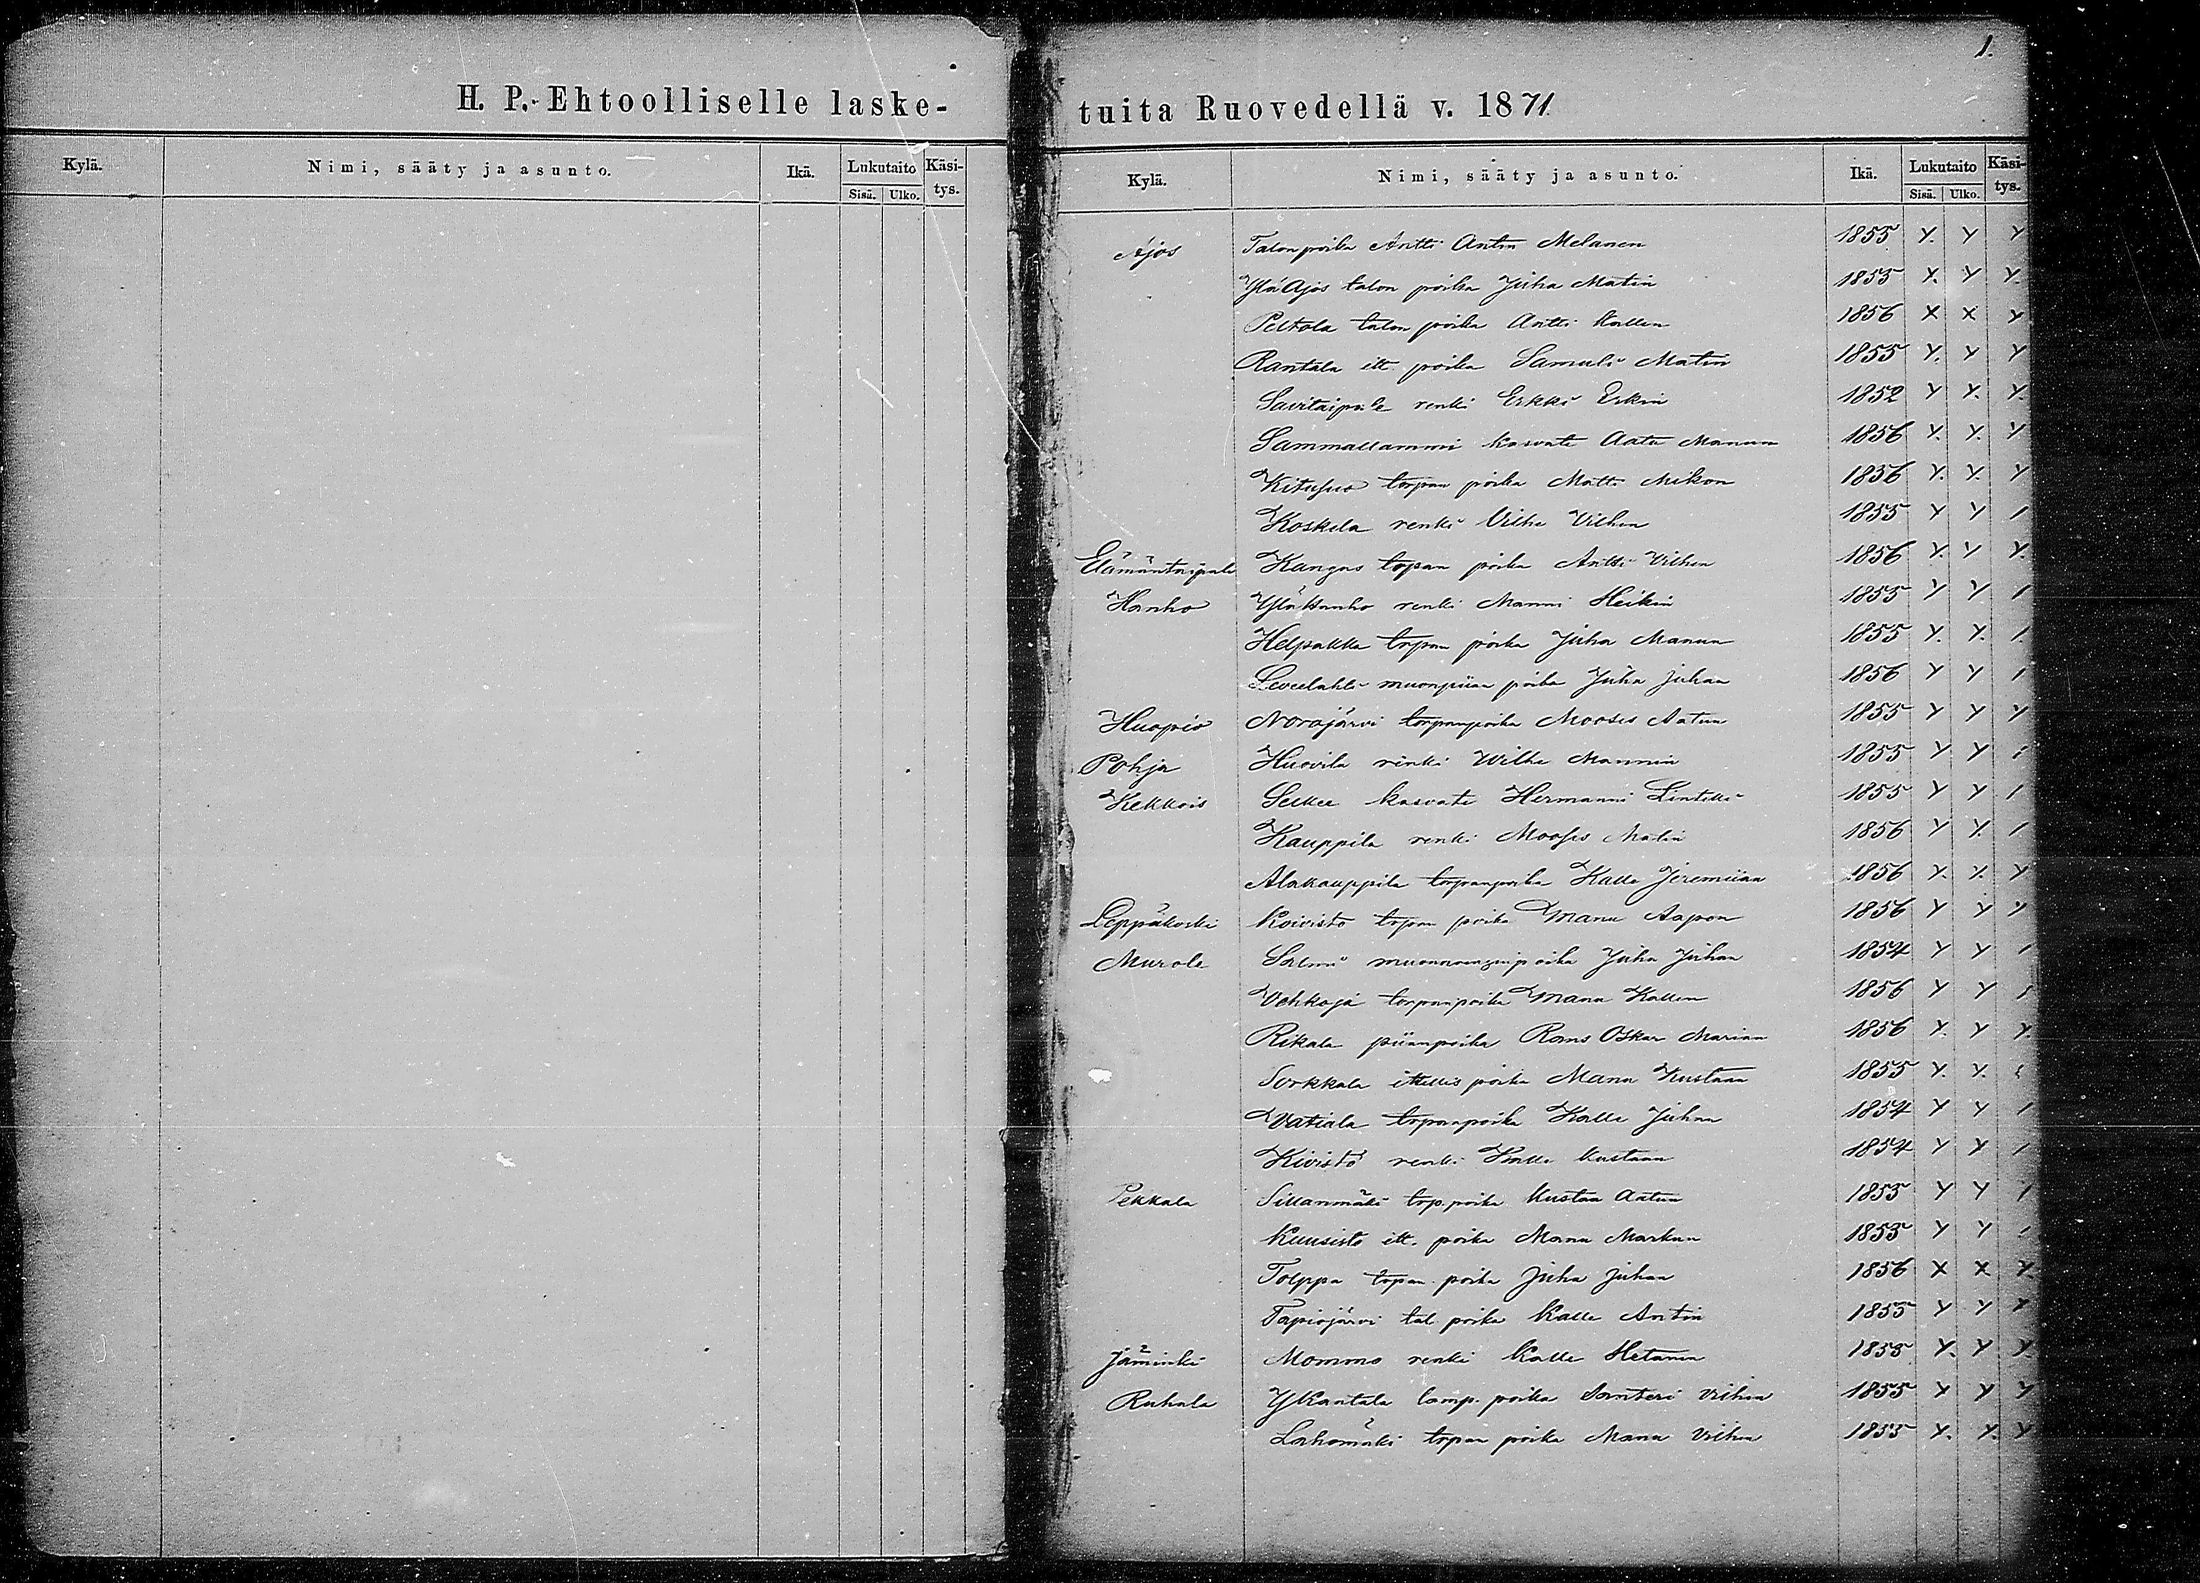 1.
H. P. Ehtoolliselle laske-
tuita Ruovedellä v. 1871.
Kylä. Nimi, sääty ja asunto. Ikä. Lukutaito Käsi-
Sisä. Ulko. tys.
Kylä. Nimi, sääty ja asunto. Ikä. Lukutaito Käsi-
Sisä. Ulko. tys.
Ajos Talonpoika Antti Antin Melanen 1855 Y. Y Y
YläAjos talon poika Juha Matin 1855 Y. Y Y.
Peltola talon poika Antti Kallen 1856 X X Y
Rantala itt. poika Samuli Matin 1855 Y. Y Y
Savitaipale renki Erkki Erkin 1852 Y Y. Y.
Sammallammi kasvatti Aatu Manun 1856 Y. Y. Y
Kitusuo torpan poika Matti Mikon 1856 Y. Y. Y
Koskela renki Vilhe Vilhen 1855 Y Y /
Elämäntaipale Kangas torpan poika Antti Vilhen 1856 Y. Y Y.
Hanho YläHanho renki Manni Heikin 1855 Y Y /
Helpakka torpan poika Juha Manun 1855 Y. Y. /
Leveelahti muonpiian poika Juha Juhan 1856 Y Y /
Huopio Norajärvi torpanpoika Mooses Aatun 1855 Y Y Y
Pohja Huovila renki Wilhe Mannin 1855 Y Y /
Kekkois Selkee kasvatti Hermanni 1855 Y Y /
Kauppila renki Mooses Matin 1856 Y Y. /
Alakauppila torpanpoika Kalle Jeremiian 1856 Y. Y. Y
Leppäkoski Koivisto torpan poika Manu Aapon 1856 Y Y Y
Murole Salmi poika Juha Juhan 1854 Y Y /
Vehkoja torpanpoika Manu Kallen 1856 Y Y /
Rikala piianpoika Rans Oskar Marian 1856 Y. Y Y.
Sorkkala ittellis poika Manu Kustaan 1855 Y. Y. /
Vatiala torpanpoika Kalle Juhan 1854 Y Y /
Kivistö renki Kalle Kustaan 1854 Y Y /
Pekkala Sillanmäki torp. poika Kustaa Aatun 1855 Y Y /
Kuusisto itt. poika Manu Markun 1855 Y Y /
Tolppa torpan poika Juha Juhan 1856 X X Y.
Tapiojärvi tal. poika Kalle Antin 1855 Y Y Y
Jäminki Mommo renki Kalle Hetanen 1855 Y. Y Y.
Ruhala YliRantala lamp. poika Santeri Vilhen 1855 Y Y Y
Lahomäki torpan poika Manu Vilhen 1855 Y. Y. Y